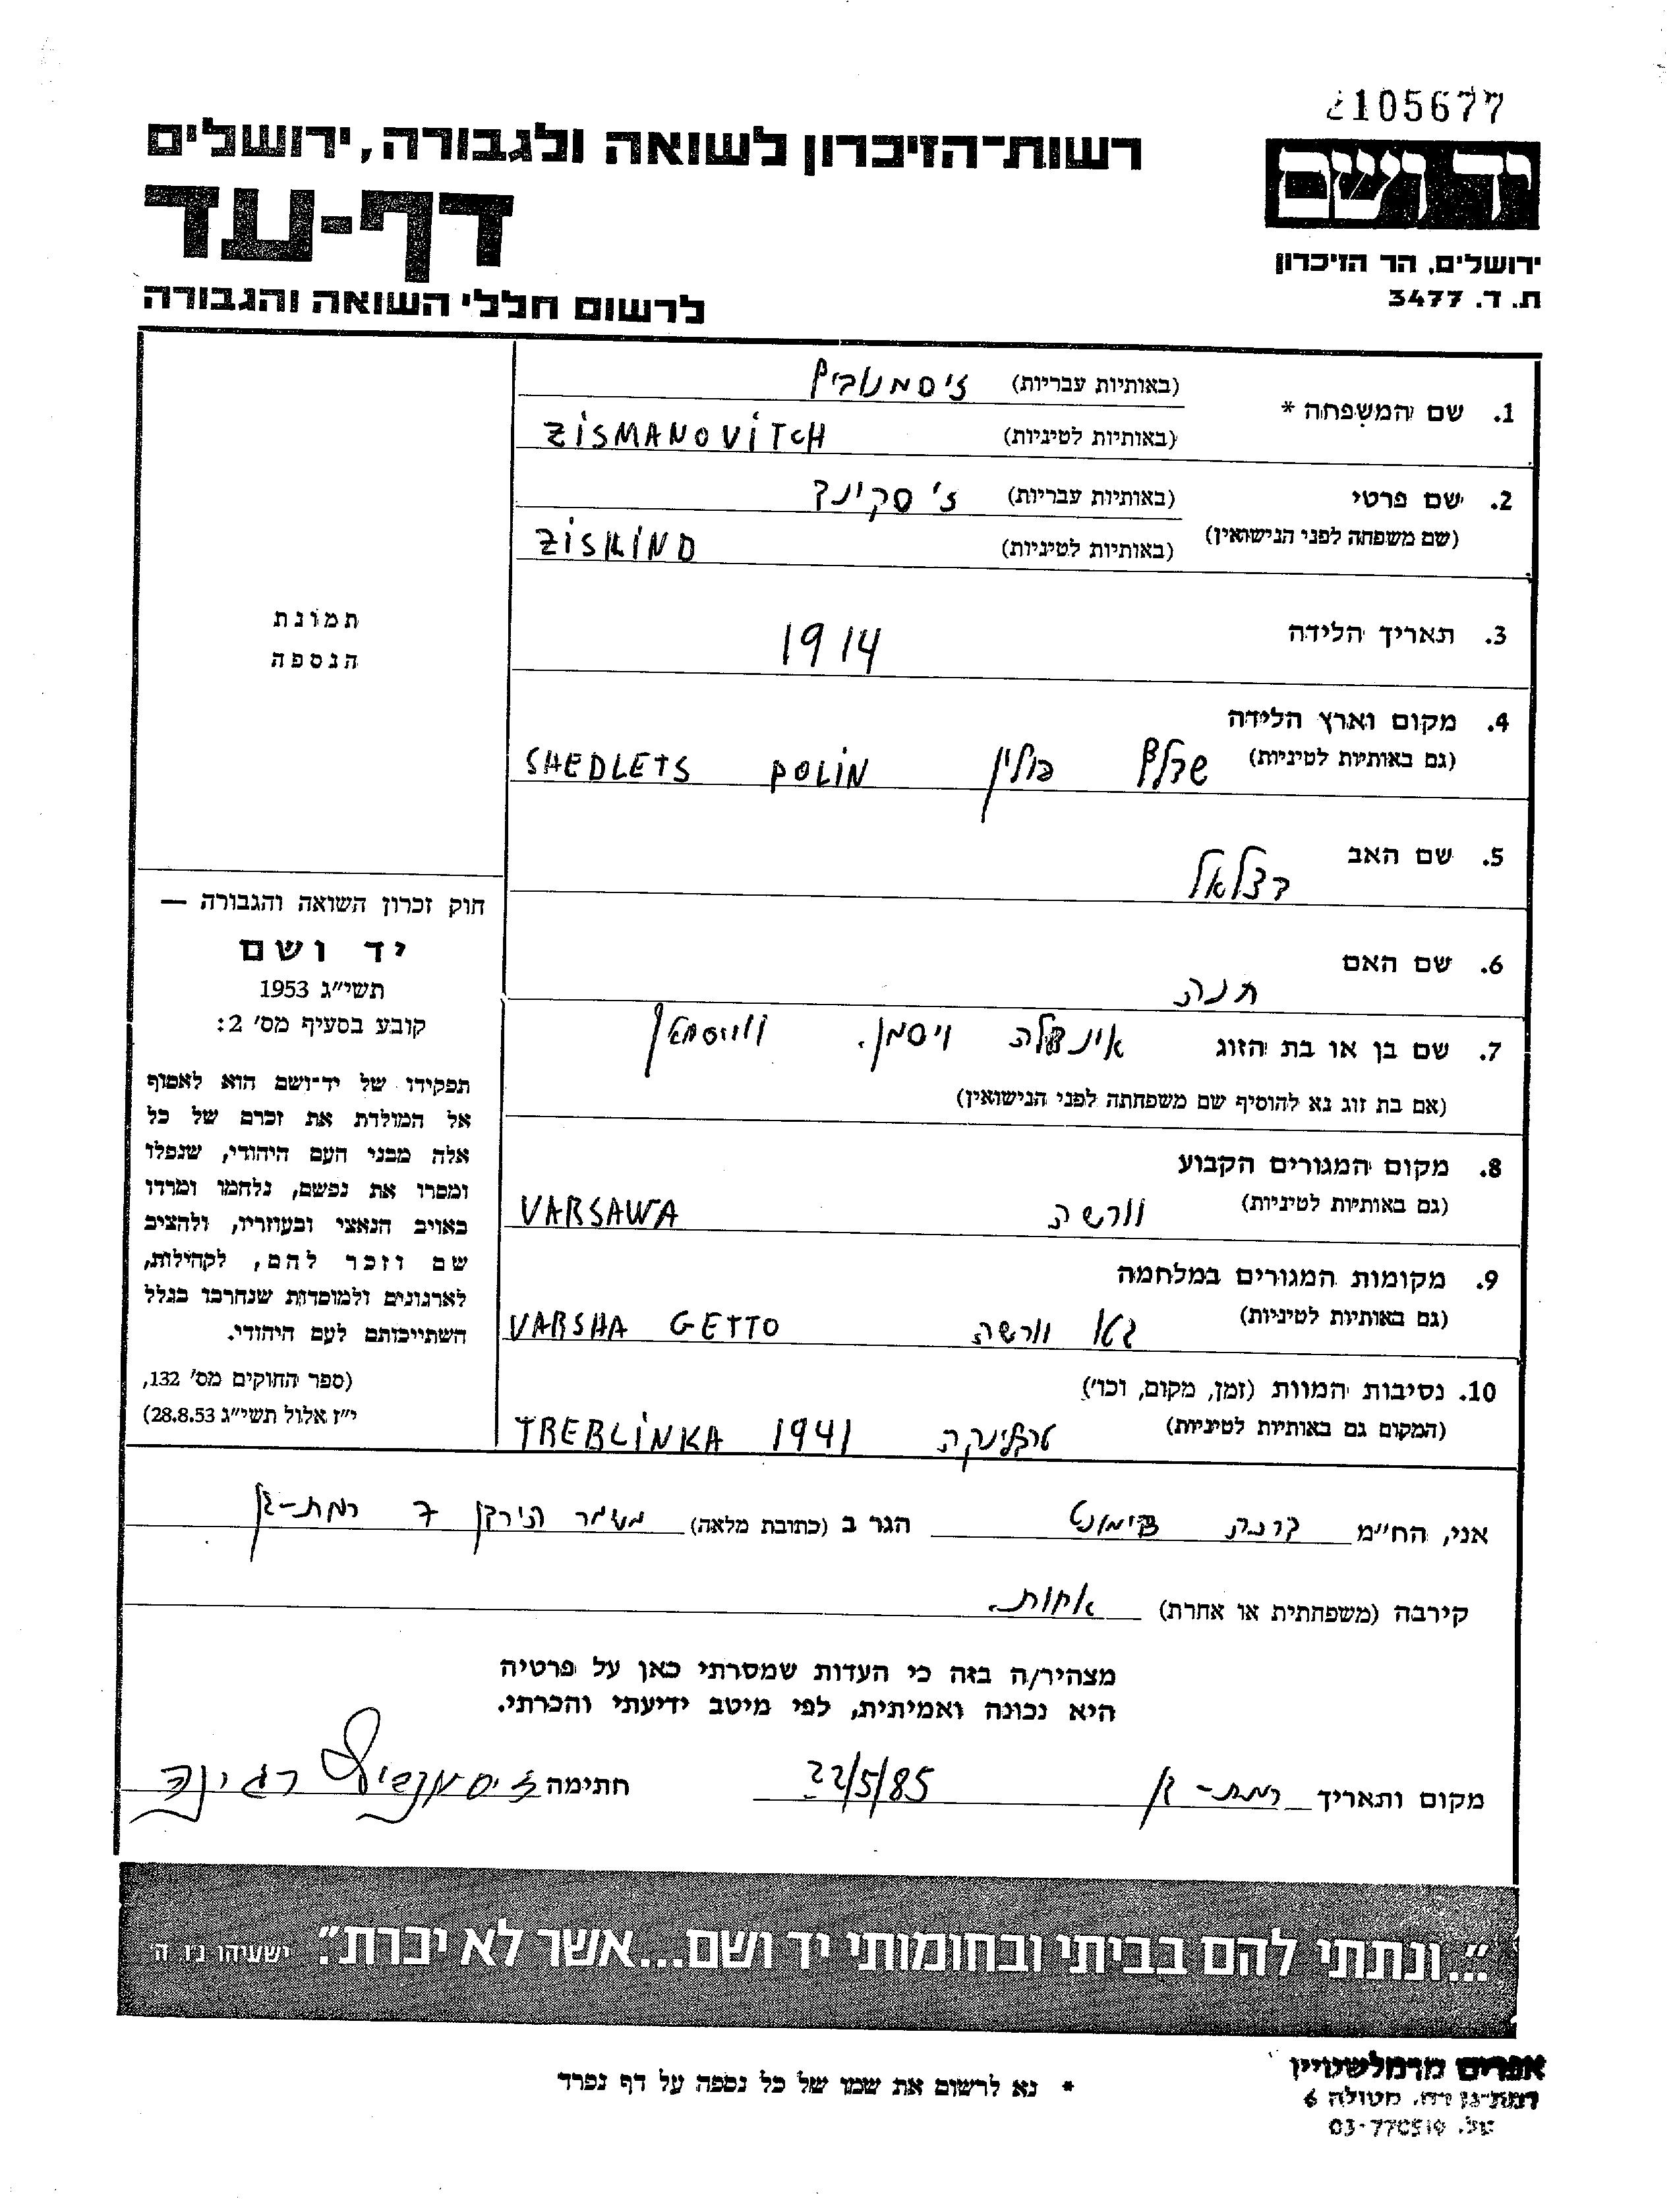 2105677
רשות-הזיכרון לשואה ולגבורה, ירושלים
יד ושם
דף-עד
ירושלים, הר הזיכרון
ת. ד. 3477
לרשום חללי השואה והגבורה
1. שם המשפחה *
(באותיות עבריות) זיסמנוביץ
(באותיות לטיניות) ZISMANOVITCH
2. שם פרטי
(שם משפחה לפני הנישואין)
(באותיות עבריות) זיסקינד
(באותיות לטיניות) ZISKIND
3. תאריך הלידה 1914
4. מקום וארץ הלידה
(גם באותיות לטיניות) שדלץ פולין SHEDLETS POLIN
5. שם האב בצלאל
6. שם האם חנה
7. שם בן או בת הזוג ויסמן.
(אם בת זוג נא להוסיף שם משפחתה לפני הנישואין)
8. מקום המגורים הקבוע
(גם באותיות לטיניות) וורשה VARSAWA
9. מקומות המגורים במלחמה
(גם באותיות לטיניות) גטו וורשה VARSHA GETTO
10. נסיבות המוות (זמן, מקום, וכו')
(המקום גם באותיות לטיניות) טרבלינקה TREBLINKA 1941
תמונת
הנספה
חוק זכרון השואה והגבורה —
יד ושם
תשי"ג 1953
קובע בסעיף מס' 2:
תפקידו של יד-ושם הוא לאסוף
אל המולדת את זכרם של כל
אלה מבני העם היהודי, שנפלו
ומסרו את נפשם, נלחמו ומרדו
באויב הנאצי ובעוזריו, ולהציב
שם וזכר להם, לקהילות,
לארגונים ולמוסדות שנחרבו בגלל
השתייכותם לעם היהודי.
(ספר החוקים מס' 132,
י"ז אלול תשי"ג 28.8.53)
אני, הח"מ הגר ב (כתובת מלאה) משמר הירדן 7 רמת-גן
קירבה (משפחתית או אחרת) אחות.
מצהיר/ה בזה כי העדות שמסרתי כאן על פרטיה
היא נכונה ואמיתית, לפי מיטב ידיעתי והכרתי.
מקום ותאריך רמת-גן 22/5/85 חתימה רגינה
"...ונתתי להם בביתי ובחומותי יד ושם...אשר לא יכרת". ישעיהו נ"ו ה'
* נא לרשום את שמו של כל נספה על דף נפרד
אפרים מרמלשטיין
רמת-גן רח. מטולה 6
טל. 03-770519